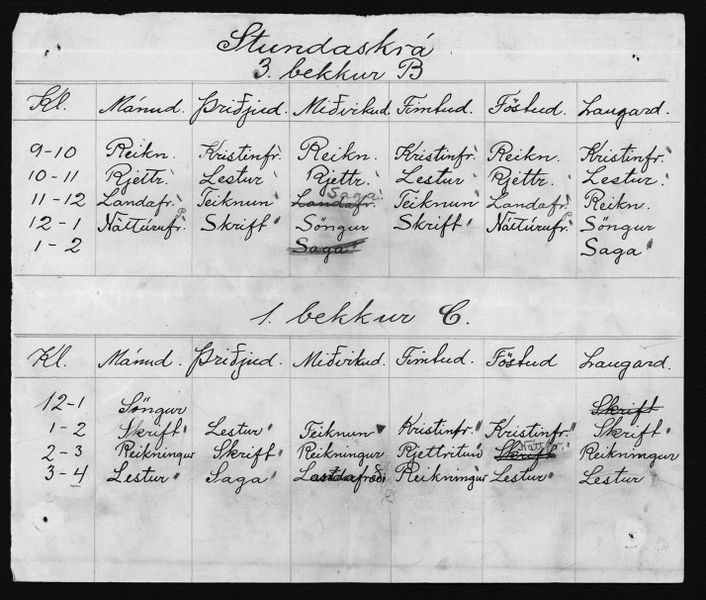 Stundaskrá
3. bekkur B
Kl. Mánud. Þriðjud. Miðvikud. Fimtud. Föstud. Laugard.
9-10 Reikn. Kristinfr. Reikn. Kristinfr. Reikn. Kristinfr.
10-11 Rjettr. Lestur Rjettr. Lestur Rjettr. Lestur
Saga
11-12 Landafr. Teiknun Landafr. Teiknun Landafr. Reikn.
12-1 Náttúrufr. Skrift Söngur Skrift Náttúrufr. Söngur
1-2 Saga Saga
1. bekkur C.
Kl. Mánud. Þriðjud. Miðvikud. Fimtud. Föstud Laugard.
12-1 Söngur Skrift
1-2 Skrift Lestur Teiknun Kristinfr. Kristinfr. Skrift
Náttfr.
2-3 Reikningur Skrift Reikningur Rjettritun Skrift Reikningur
3-4 Lestur Saga Landafræði Reikningur Lestur Lestur